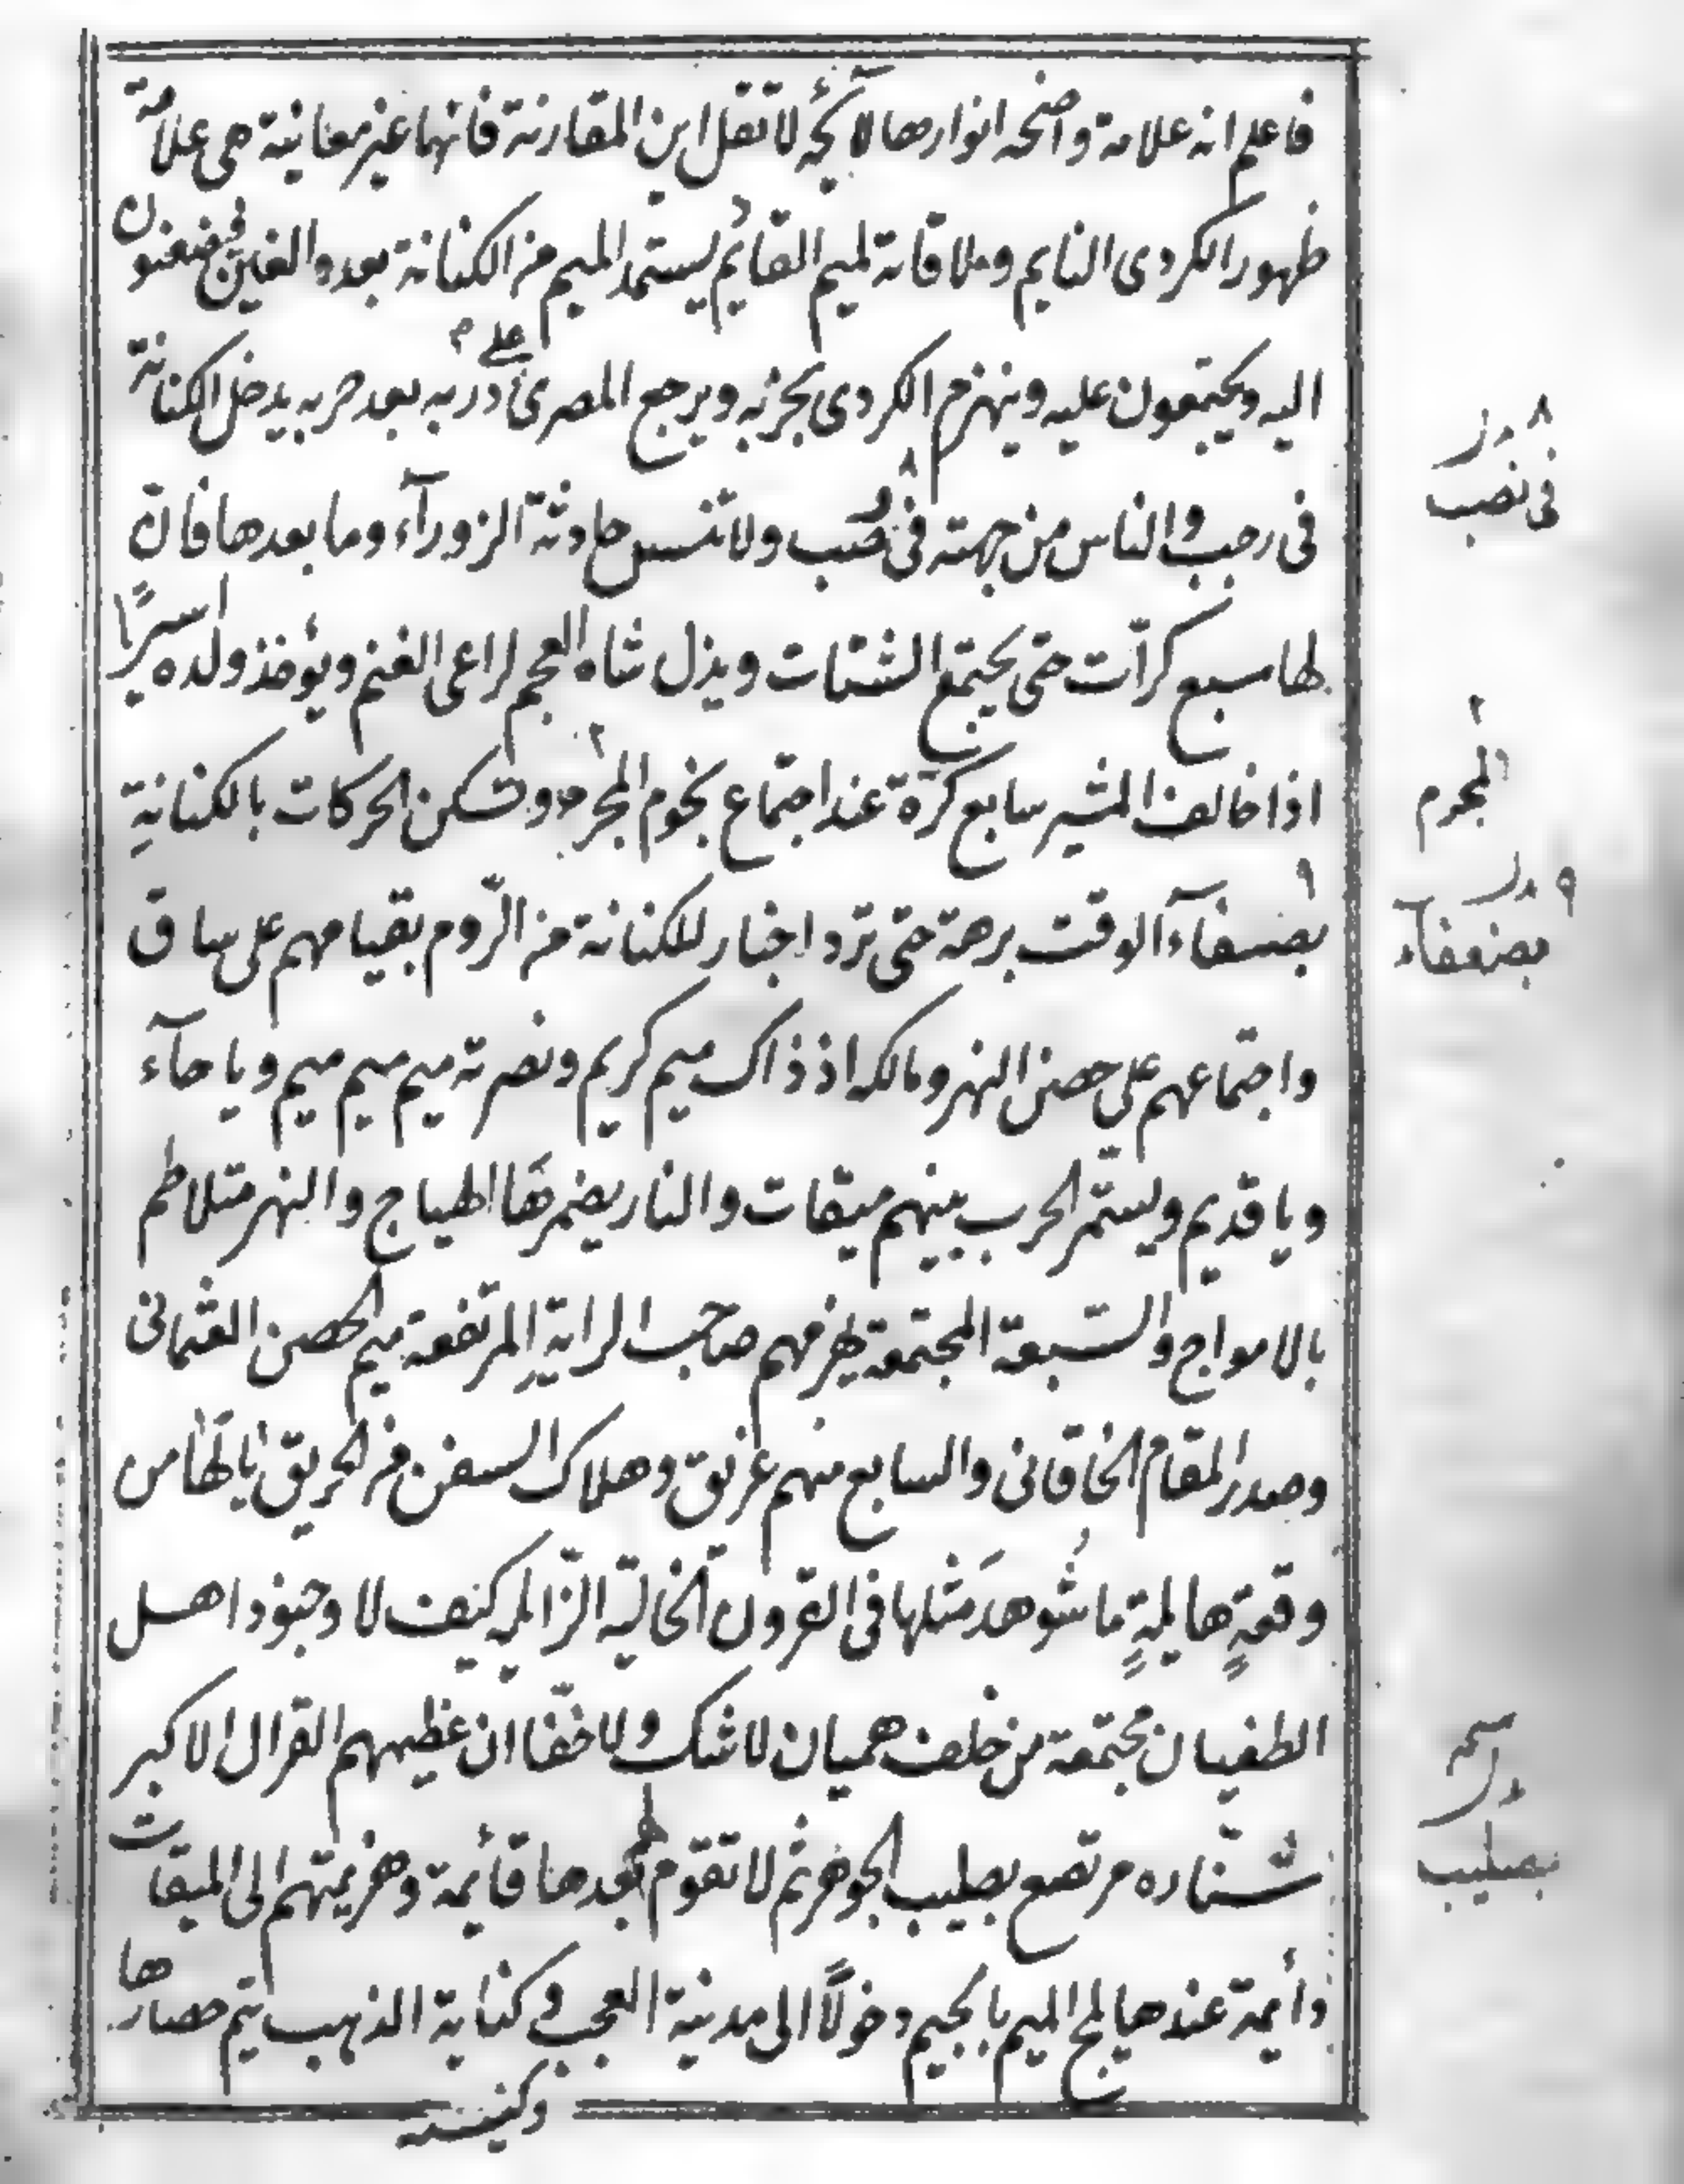 فاعلم انه علامة واضحه انوارها لايحُه لا تقل اين المقارنة فانها عين معاينة هى علامة
ظهور الكردى النايم وملاقاته لميم القايم يستمد الميم من الكنانة بعده والغين فيضعنون
اليه ويجتمعون عليه وينهزم الكردى بحزبه ويرجع المصرى على دربه بعد حربه يدخل الكنانة
فى رجب والناس من جهته فى صُب ولا تنس حادثة الزورآء وما بعدها فان
لها سبع كرّات حتى يجتمع الشتات ويذل شاه العجم لراعى الغنم ويؤخذ ولده اسيرًا
اذا خالف المشير سابع كرّة عند اجتماع نجوم المجرم وتسكن الحركات بالكنانةِ
بضسفآء الوقت برهة حتى ترد اخبار للكنانة من الرّوم بقيامهم على ساق
واجتماعهم على حصن النهر ومالكه اذ ذاك ميم كريم ونصرته ميم ميم ميم ويا حآء
ويا قديم ويستمّر الحرب بينهم ميقات والنار يضرمهَا الهياج والنهر متلاطم
بالامواج والسّبعة المجتمعة يهزمهم صاحب الرايةِ المرتفعة ميم الحصن العثمانى
وصدر المقام الخاقانى والسابع منهم غريق وهلاك السفن من الحريق يا لهَا من
وقعةٍ هايلةٍ ما شُوهدَ مثلها فى القرون الخاليّه الزّايله كيف لا وجنود اهل
الطغيان مجتمعة من خلف هميان لا شك ولا خفّا ان عظيمهم القرال الاكبر
شنّاره مرتفع بصليب الجوهر ثم لا تقوم لهم بعدها قائمة وهزيمتهم الى الميقات
دائمة عندها يلج الميم بالجيم دخولًا الى مدينة العجب وكنانة الذهب يتم حصارها
وكنيسة
٨ بدل
فى نصب
٢
المجرم
٩ بدل
بضعفاء
نسخه
بدل
بصليب